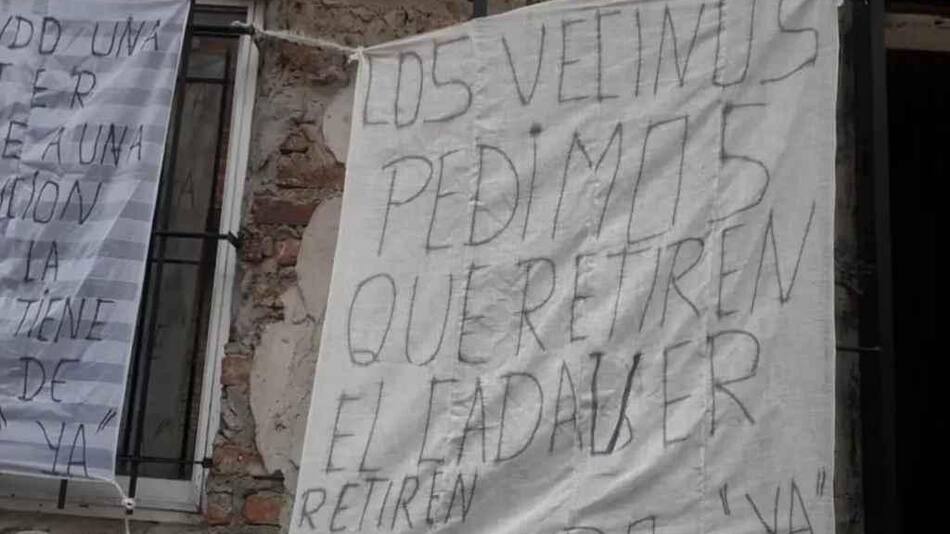 UNA
ER
E A UNA
LA
TIENE
DE
"YA"
LOS VECINOS
PEDIMOS
QUE RETIREN
EL CADAVER
RETIREN
"YA"